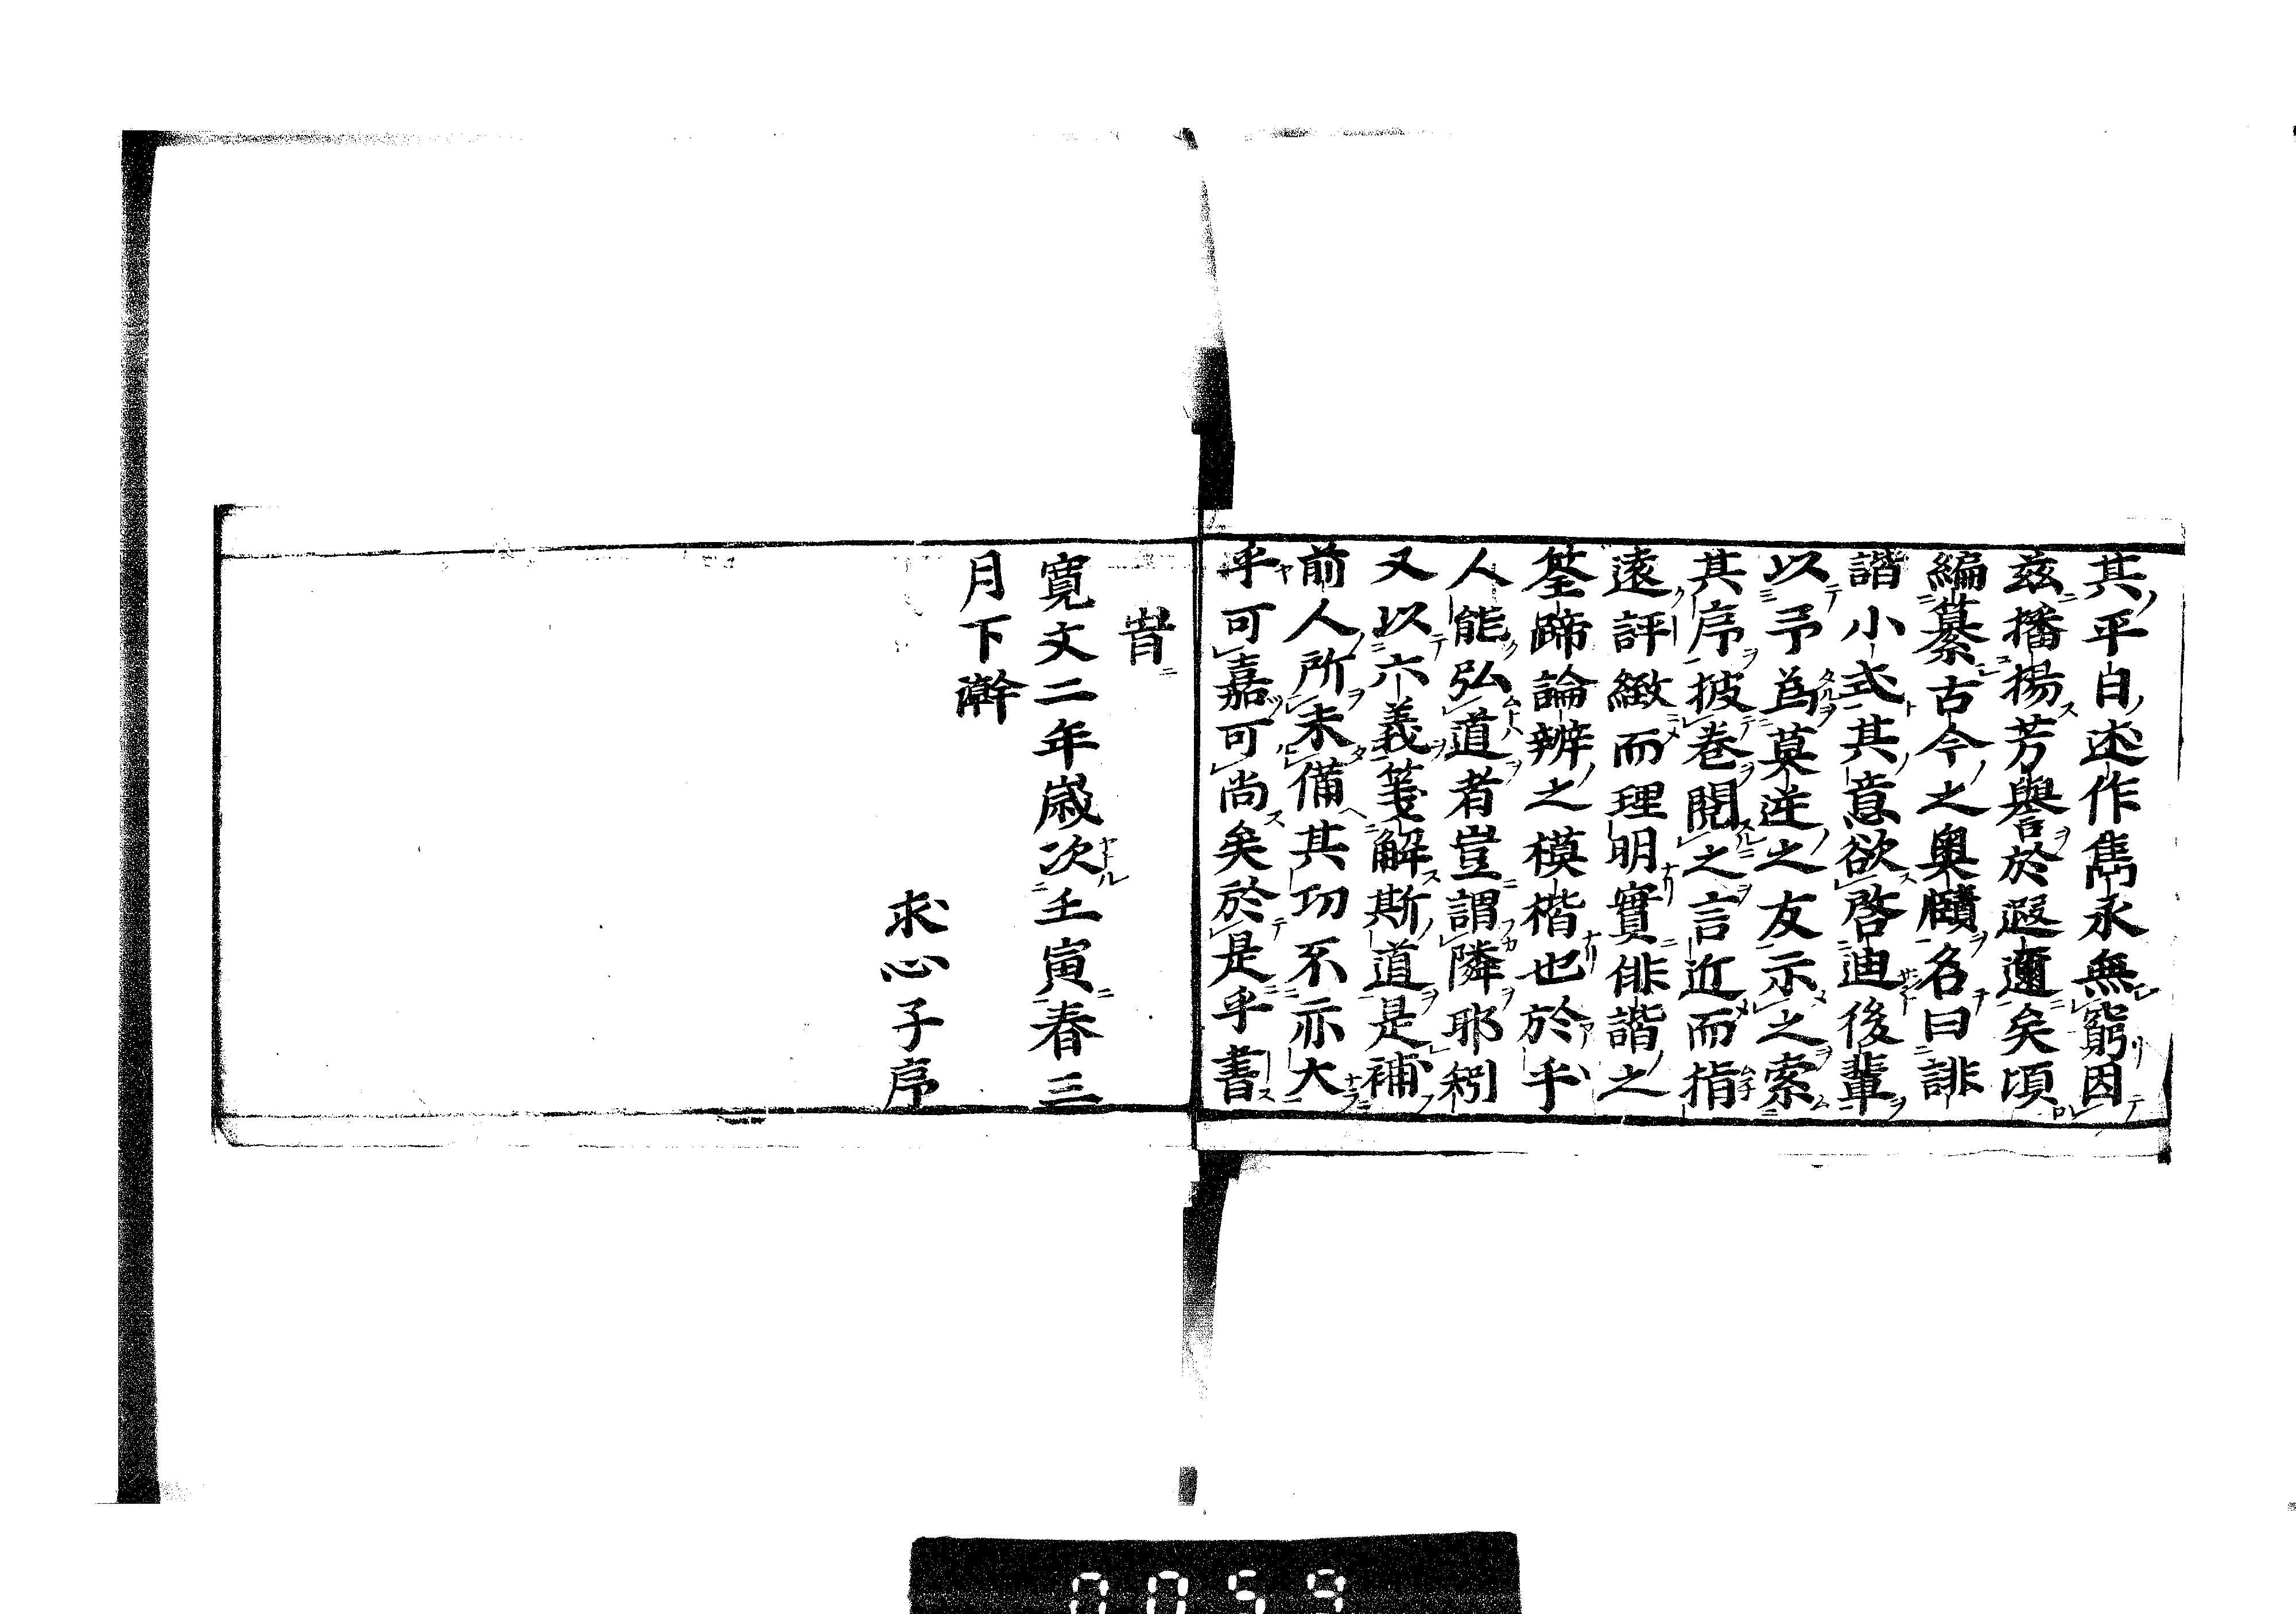 其平日述作雋永無窮因
茲播揚芳譽於遐邇矣頃
編纂古今之奧賾名曰誹
諧小式其意欲啓迪後輩
以予爲莫逆之友示之索
其序披卷閲之言近而指
遠評緻而理明實俳諧之
筌蹄論辨之模楷也於乎
人能弘道者豈謂隣耶矧
又以六義箋解斯道是補
前人所未備其功不亦大
乎可嘉可尚矣於是乎書
旹
寛文二年歳次壬寅春三
月下澣
求心子序
0059